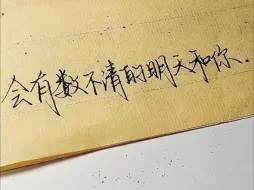 会有数不清的明天和你.